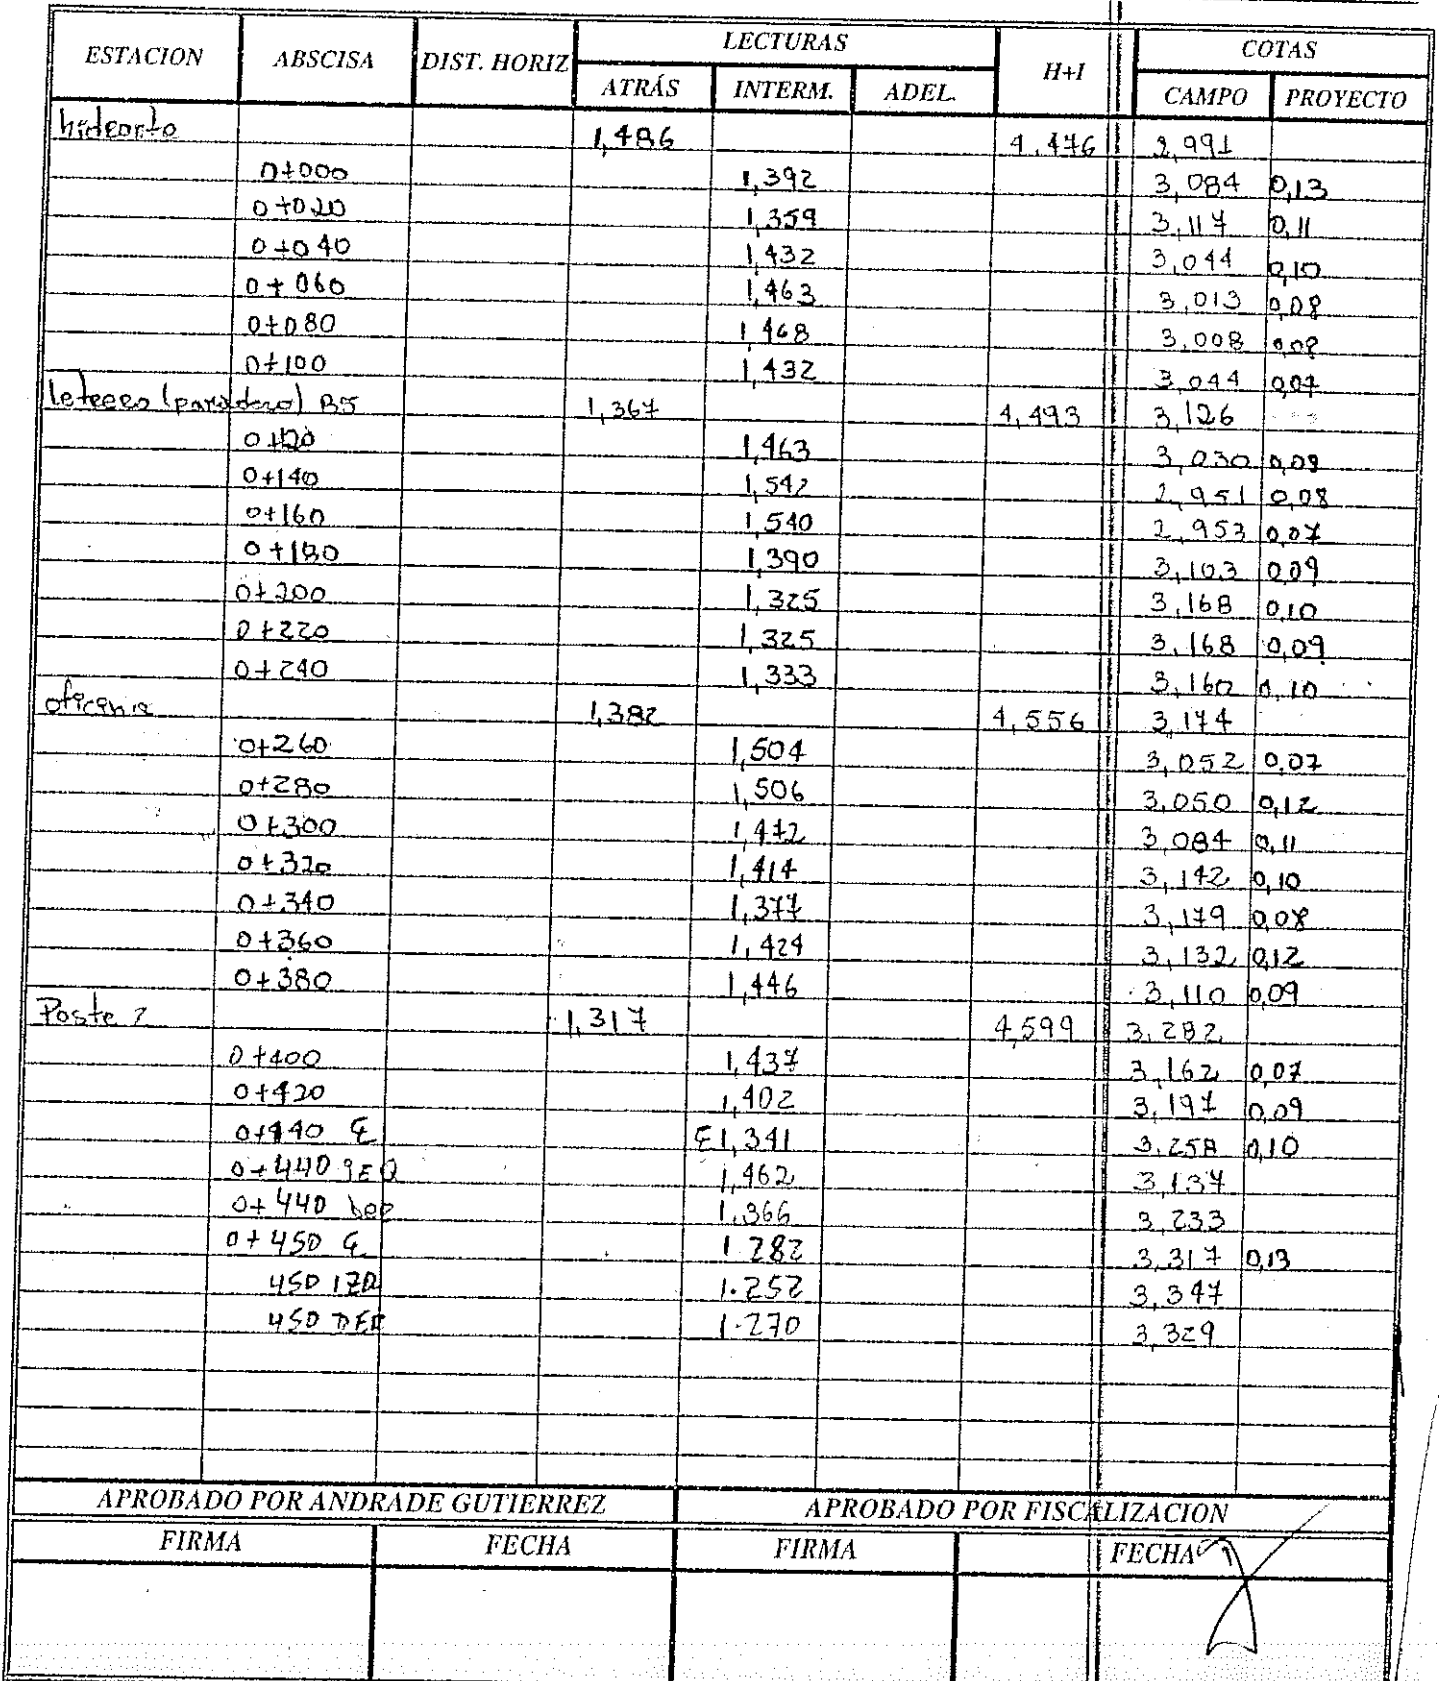 ESTACION ABSCISA DIST. HORIZ LECTURAS H+I COTAS
ATRÁS INTERM. ADEL. CAMPO PROYECTO
1,486 4.476 2,991
0+000 1,392 3,084 0,13
0+020 1,359 3,117 0,11
0+040 1,432 3,044 0,10
0+060 1,463 3,013 0,08
0+080 1,468 3,008 0,08
0+100 1,432 3,044 0,07
(paradero) B5 1,367 4,493 3,126
0+120 1,463 3,030 0,09
0+140 1,542 2,951 0,08
0+160 1,540 2,953 0,07
0+180 1,390 3,103 0,09
0+200 1,325 3,168 0,10
0+220 1,325 3,168 0,09
0+240 1,333 3,160 0,10
oficina 1,382 4,556 3,174
0+260 1,504 3,052 0,07
0+280 1,506 3,050 0,12
0+300 1,472 3,084 0,11
0+320 1,414 3,142 0,10
0+340 1,377 3,179 0,08
0+360 1,424 3,132 0,12
0+380 1,446 3,110 0,09
Poste 2 1,317 4,599 3,282
0+400 1,437 3,162 0,07
0+420 1,402 3,197 0,09
0+440 ℄ ℄ 1,341 3.258 0,10
0+440 1,462 3,137
0+440 1.366 3,233
0+450 ℄ 1.282 3,317 0,13
450 IZQ 1.252 3,347
450 DER 1.270 3,329
APROBADO POR ANDRADE GUTIERREZ APROBADO POR FISCALIZACION
FIRMA FECHA FIRMA FECHA